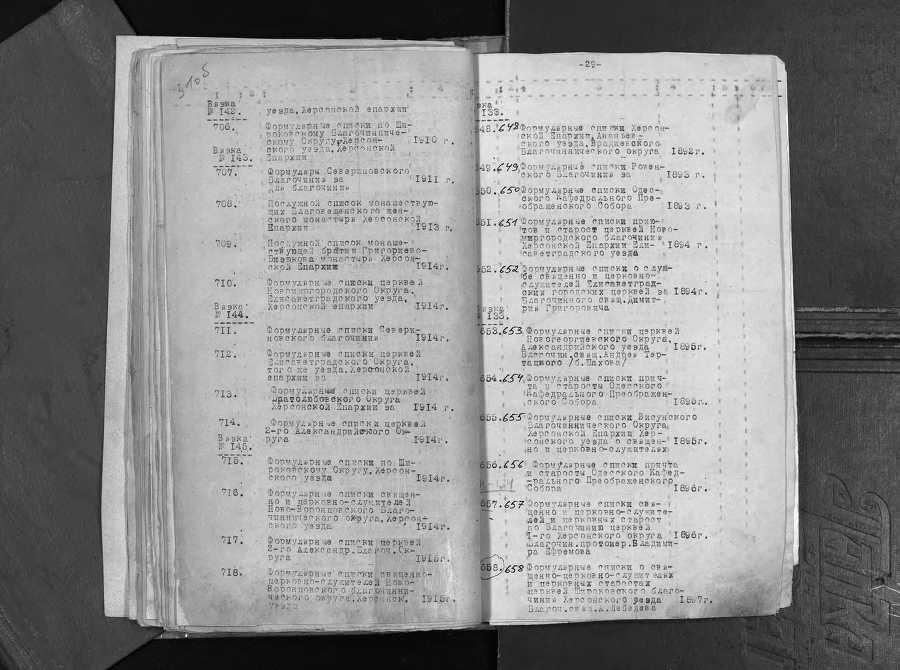 3105
Вязка
№ 142.
уезда, Херсонской епархии
706.
Формулярные списки по Ши-
роковскому Благочинниче-
скому Округу, Херсон-
ского уезда, Херсонской
Епархии
1910 г.
Вязка
№ 143.
707.
Формуляры Севериновского
Благочиния за
для благочиния
1911 г.
708.
Послужной список монашествую-
щих Благовещенского жен-
ского монастыря Херсонской
Епархии
1913 г.
709.
Послужной список монаше-
ствующей братии Григориево-
Бизюкова монастыря Херсон-
ской Епархии
1914г.
710.
Формулярные списки церквей
Новомиргородского Округа,
Елисаветградского уезда,
Херсонской епархии
1914г.
Вязка
№ 144.
711.
Формулярные списки Севери-
новского благочиния
1914г.
712.
Формулярные списки церквей
Елисаветградского Округа,
того же уезда, Херсонской
епархии за
1914г.
713.
Формулярные списки церквей
Братолюбовского Округа
Херсонской Епархии за
1914 г.
714.
Формулярные списки церквей
2-го Александрийского Ок-
руга
1914г.
Вязка
№ 145.
715.
Формулярные списки по Ши-
роковскому Округу, Херсон-
ского уезда
1914г.
716.
Формулярные списки священ-
но и церковно-служителей
Ново-Воронцовского Благо-
чиннического округа, Херсон-
ского уезда
1914г.
717.
Формулярные списки церквей
2-го Александр. Благоч. Ок-
руга
1915г.
718.
Формулярные списки священно-
церковно-служителей Ново-
Воронцовского благочинни-
ческого округа, Херсонск.
уезда
1915г.
-29-
133.
648. 648
Формулярные списки Херсон-
ской Епархии, Ананьев-
ского уезда, Врадиевского
Благочиннического округа
1892г.
649. 649
Формулярные списки Ровен-
ского Благочиния за
1893 г.
650. 650
Формулярные списки Одес-
ского Кафедрального Пре-
ображенского Собора
1893 г.
651. 651
Формулярные списки прич-
тов и старост церквей Ново-
миргородского благочиния
Херсонской Епархии Ели-
саветградского уезда
1894 г.
652. 652
Формулярные списки о служ-
бе священно и церковно-
служителей Елисаветград-
ских городских церквей за
Благочинного свящ. Димит-
рия Григоровича
1894г.
133.
653. 653
Формулярные списки церквей
Новогеоргиевского Округа,
Александрийского уезда
Благочин. свящ. Андрея Тер-
тацкого /б. Шахова/
1895г.
654. 654
Формулярные списки прич-
та и старосты Одесского
Кафедрального Преображен-
ского Собора
1895г.
655. 655
Формулярные списки Висунского
Благочиннического Округа,
Херсонской Епархии Хер-
сонского уезда о священ-
но и церковно-служителях
1895г.
656. 656
Формулярные списки причта
и старосты Одесского Кафед-
рального Преображенского
Собора
1896г.
657. 657
Формулярные списки свя-
щенно и церковно-служите-
лей и церковных старост
по Благочинию церквей
1-го Херсонского округа
Благочин. протоиер. Владими-
ра Ефремова
1896г.
658. 658
Формулярные списки о свя-
щенно-церковно-служителях
и церковных старостах
церквей Широковского благо-
чиния Херсонского уезда
Благоч. свящ. А. Лебедева
1897г.